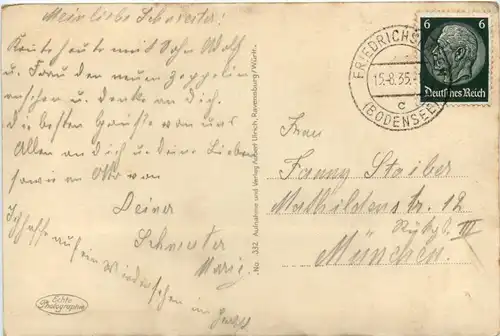 Meine liebe Schwester!
Konnte heute mit Sohn Wolf
u. Frau den neuen Zeppelin
ansehen u. denke an dich.
die besten Grüße von uns
Allen an dich u. deine Lieben
sowie an Otto von
Deiner
Schwester
Marie
Ich hoffe auf ein Wiedersehen im
Echte
Photographie
No. 332 Aufnahme und Verlag Aubert Ulrich, Ravensburg/Württ.
FRIEDRICHS
15.8.35.
c
(BODENSEE)
6 6
Deutsches Reich
Frau
Fanny Staiber
Mathildenstr. 12
Rückg. III
München.